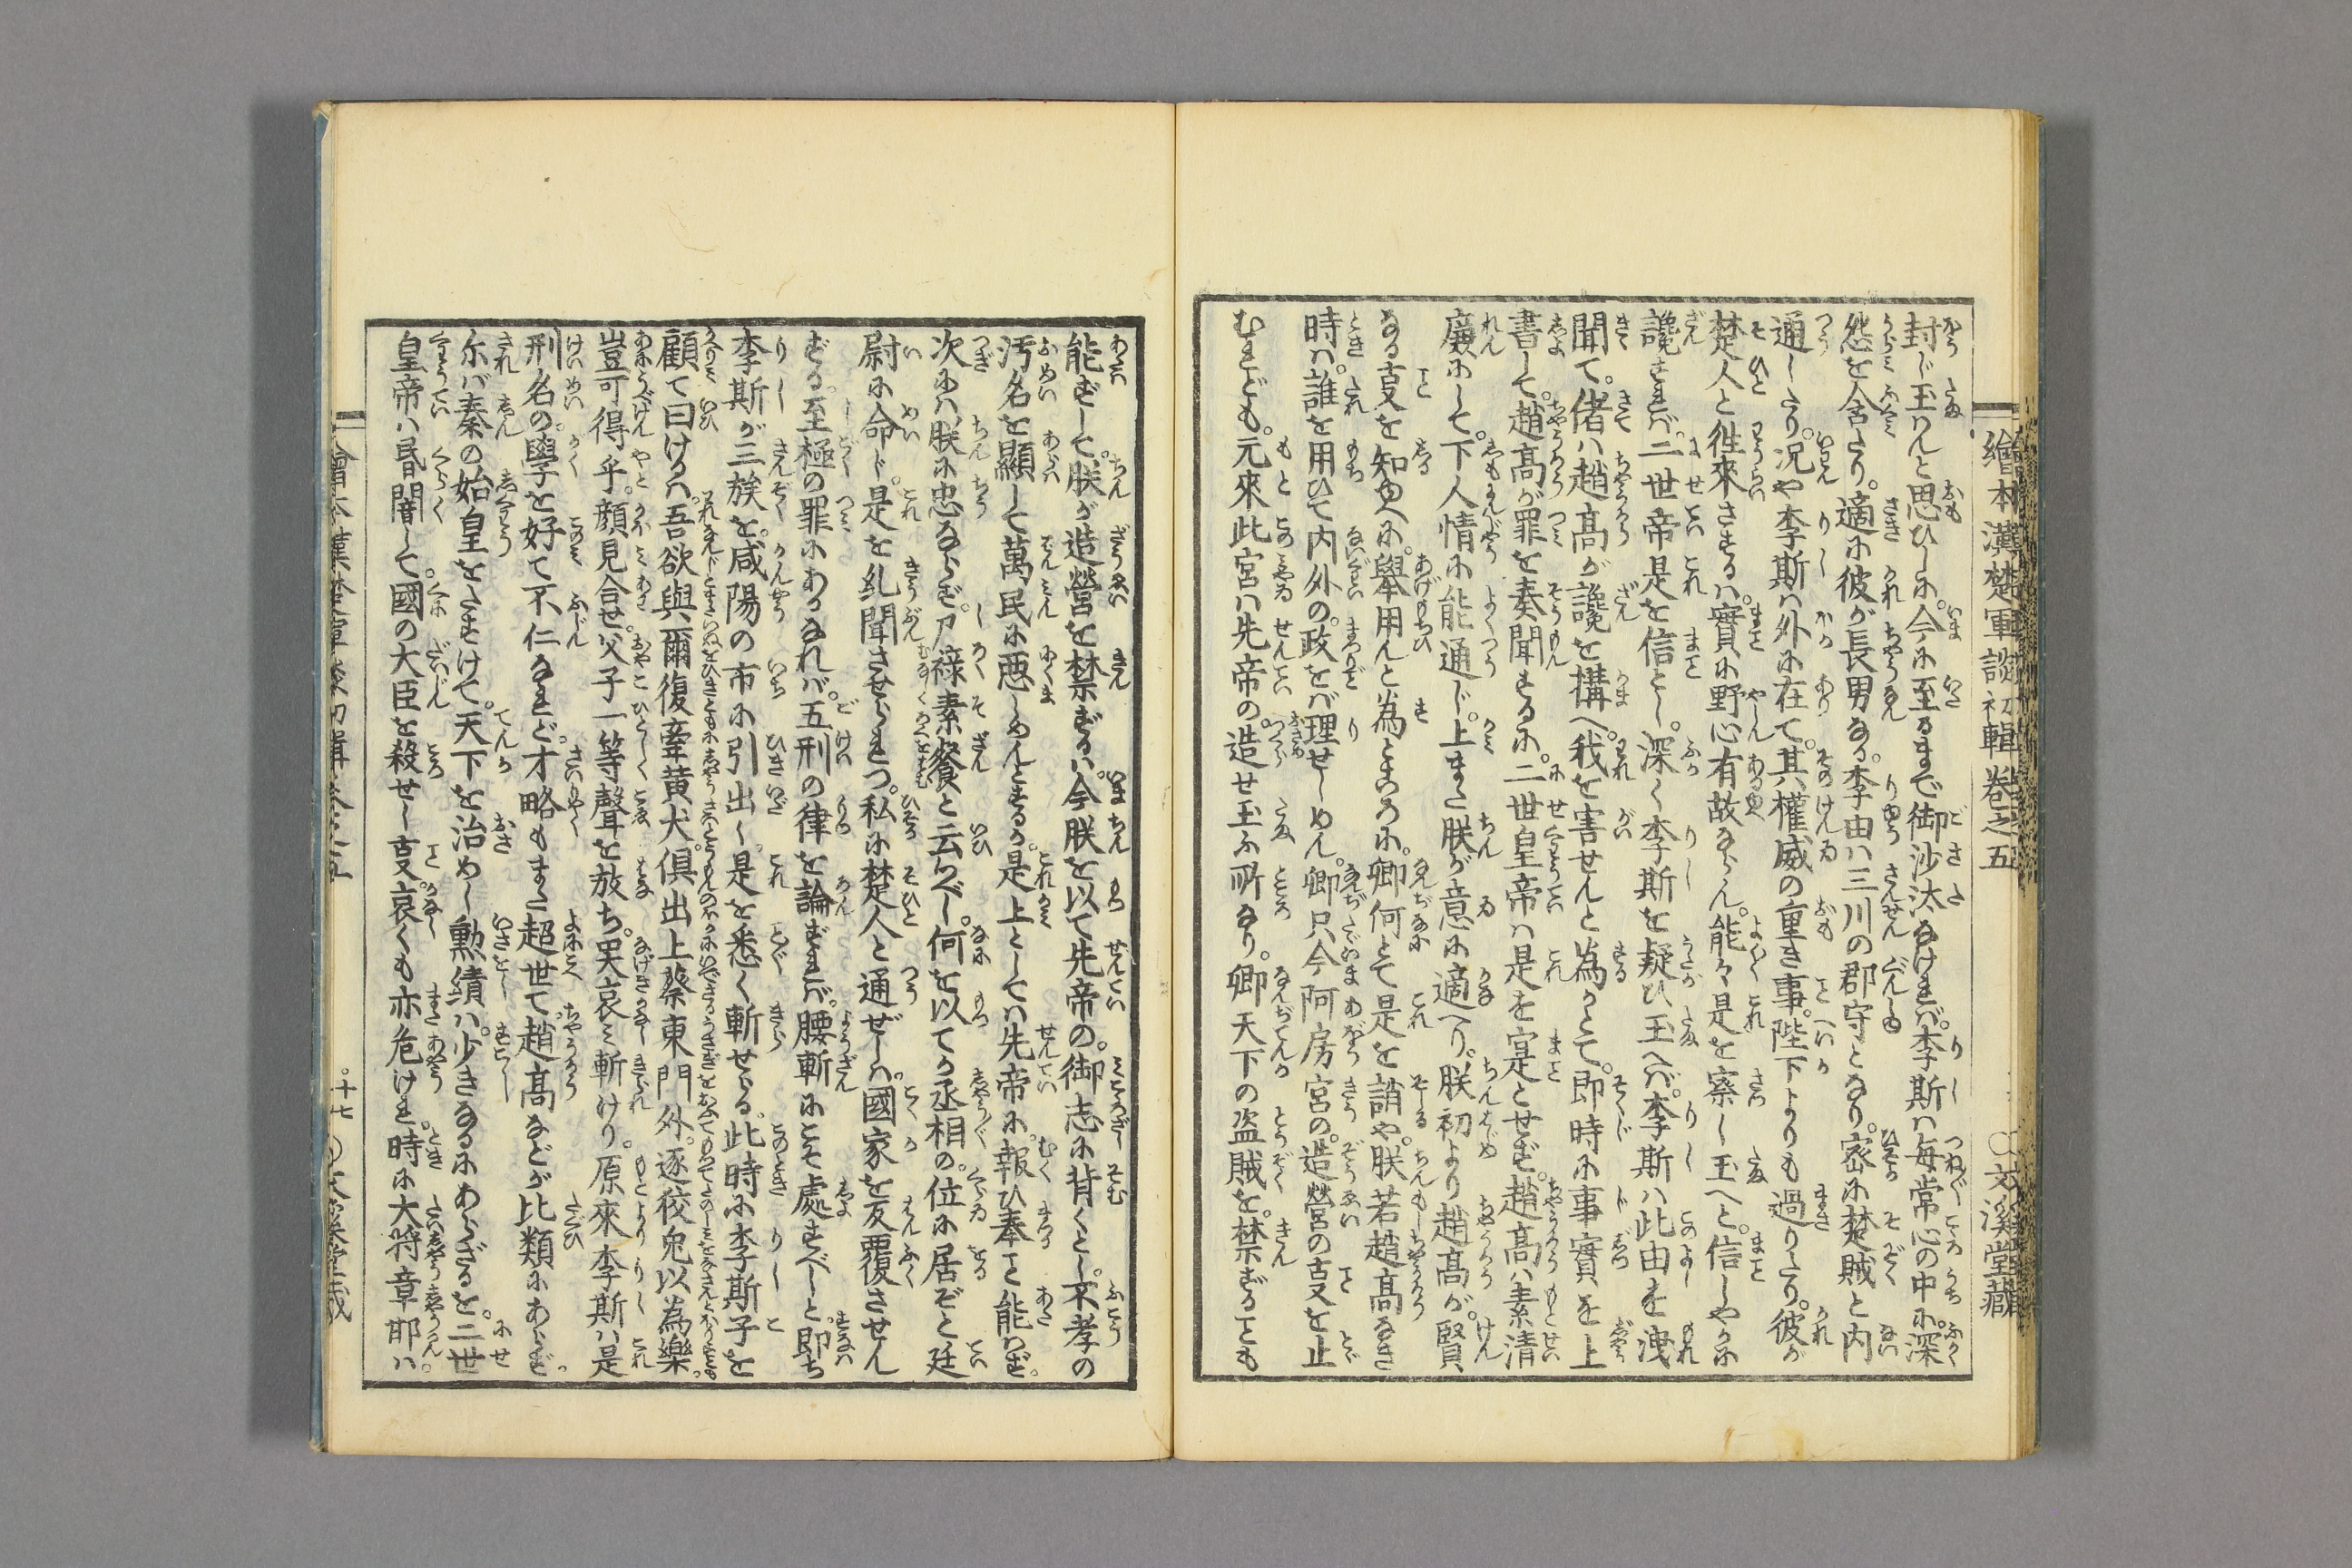 繪本漢楚軍談初輯卷之五
〇文溪堂藏
封じ玉はんと思ひしに。今に至るまで御沙汰なければ。李斯ハ毎常心の中に。深く
怨を含たり。適に彼が長男なる。李由ハ三川の郡守となり。密に楚賊と内
通したり。況や李斯ハ外に在て。其權威の重き事。陛下よりも過りたり。彼が
楚人と徃來さするハ。實に野心有故ならん。能々是を察し玉へと。信しやかに
讒すれバ。二世帝是を信とし。深く李斯を疑ひ玉へバ。李斯ハ此由を洩
聞て。偖ハ趙高が讒を搆へ。我を害せんと為かとて。即時に事實を上
書して。趙高が罪を奏聞するに。二世皇帝ハ是を寔とせず。趙高ハ素清
廉にして。下人情に能通じ。上また朕が意に適へり。朕初より趙高が。賢
なる㕝を知ゆへに。擧用んと為ところに。卿何とて是を誚や。朕若趙高なき
時ハ。誰を用ひて内外の。政をバ理せしめん。卿只今阿房宮の。造營の㕝を止
むれども。元來此宮ハ先帝の。造せ玉ふ所なり。卿天下の盗賊を。禁ずることも
能ずして。朕が造營を禁ずるハ。今朕を以て先帝の。御志に背くとし。不孝の
汚名を顯して萬民に悪しめんとするか。是上としてハ先帝に。報ひ奉ること能はず。
次にハ朕に忠ならず。尸祿素餐と云べし。何を以てか丞相の。位に居ぞと廷
尉に命じ。是を糺聞させられつ。私に楚人と通ぜしハ。國家を反覆させん
ずる。至極の罪にあるなれバ。五刑の律を論ずれバ。腰斬にこそ處すべしと。即ち
李斯が三族を。咸陽の市に引出し。是を悉く斬せらる。此時に李斯子を
顧て曰けるハ。吾欲與爾復牽黄犬。倶出上蔡東門外。逐狡兎以為樂。
豈可得乎。顔見合せ。父子一等聲を放ち。哭哀ミ斬けり。原來李斯ハ是
刑名の。學を好て不仁なれど。才略もまた超世て。趙高などが比類にあらず。
尓バ秦の始皇をたすけて。天下を治めし勲績ハ。少きなるにあらざるを。二世
皇帝ハ昬闇して。國の大臣を殺せし㕝哀くも亦危けれ。時に大将章邯ハ
十七